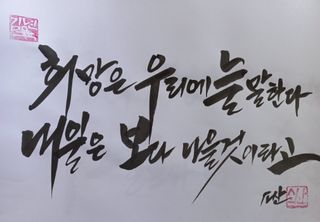 희망은 우리에 늘 말한다
내일은 보다 나을것이라고